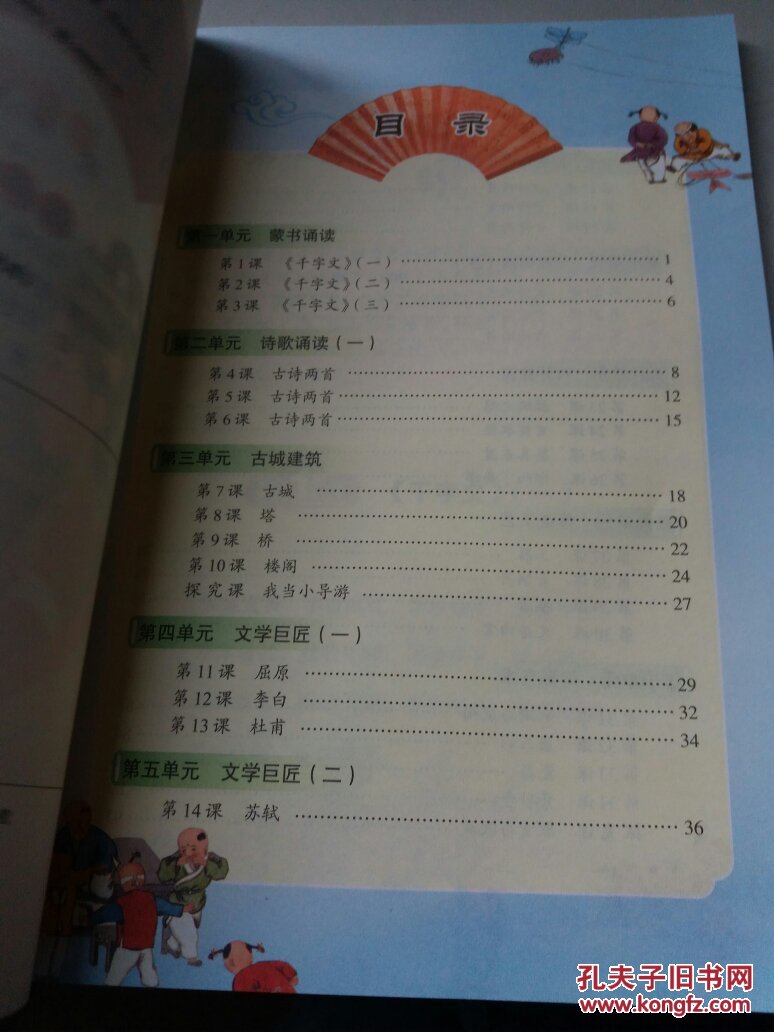 目 录
第一单元 蒙书诵读
第1课 《千字文》(一) 1
第2课 《千字文》(二) 4
第3课 《千字文》(三) 6
第二单元 诗歌诵读(一)
第4课 古诗两首 8
第5课 古诗两首 12
第6课 古诗两首 15
第三单元 古城建筑
第7课 古城 18
第8课 塔 20
第9课 桥 22
第10课 楼阁 24
探究课 我当小导游 27
第四单元 文学巨匠(一)
第11课 屈原 29
第12课 李白 32
第13课 杜甫 34
第五单元 文学巨匠(二)
第14课 苏轼 36
孔夫子旧书网
www.kongfz.com